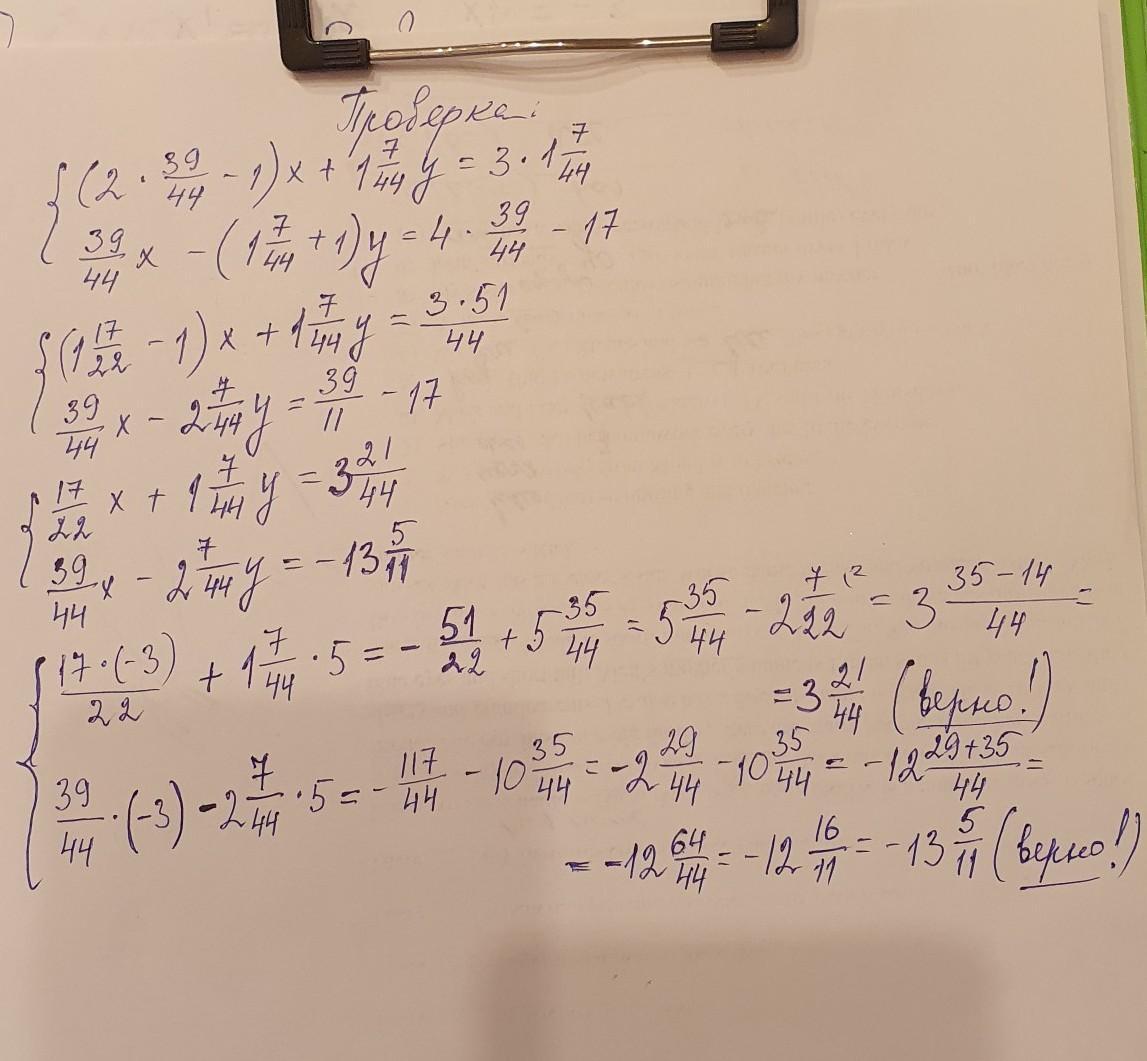 Проверка:
{ (2 · 39/44 - 1)x + 1 7/44 y = 3 · 1 7/44
39/44 x - (1 7/44 + 1)y = 4 · 39/44 - 17
{ (1 17/22 - 1)x + 1 7/44 y = 3·51/44
39/44 x - 2 7/44 y = 39/11 - 17
{ 17/22 x + 1 7/44 y = 3 21/44
39/44 x - 2 7/44 y = -13 5/11
{ 17·(-3)/22 + 1 7/44 · 5 = - 51/22 + 5 35/44 = 5 35/44 - 2 7/22 (2 = 3 35-14/44 =
= 3 21/44 (верно!)
39/44 · (-3) - 2 7/44 · 5 = - 117/44 - 10 35/44 = -2 29/44 - 10 35/44 = -12 29+35/44 =
= -12 64/44 = -12 16/11 = -13 5/11 (верно!)